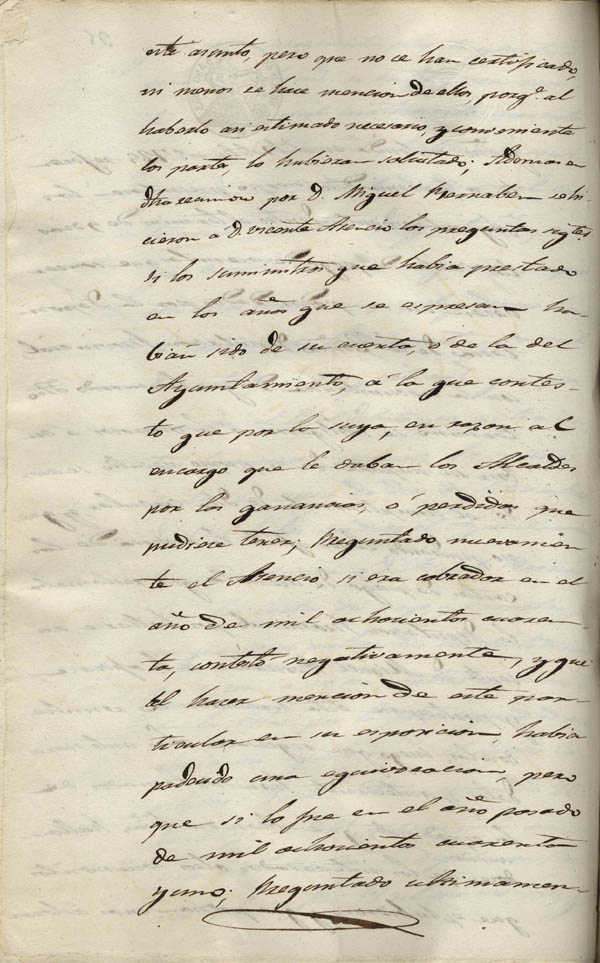 este asunto, pero que no se han certificado,
ni menos se hace mencion de ellos, porq.e al
haberlo asi estimado necesario, y conveniente
los parta, lo hubieran solicitado; Ademas en
dha reunion por D. Miguel Bernabeu se hi-
cieron a D. Vicente Asencio las preguntas sigtes.
si los suministros que habia prestado
en los años que se espresan ha-
bian sido de su cuenta, ó de la del
Ayuntamiento, á la que contes-
tó que por la suya, en razon al
encargo que le daban los Alcaldes
por las ganancias, ó perdidas que
pudiese tener; Preguntado nuevamen-
te el Asencio, si era cobrador en el
año de mil ochocientos cuaren-
ta, contestó negativamente, y que
al hacer mencion de este par-
ticular en su esposicion, habia
padecido una equivocacion, pero
que si lo fue en el año pasado
de mil ochocientos cuarenta
y uno; Preguntado ultimamen-